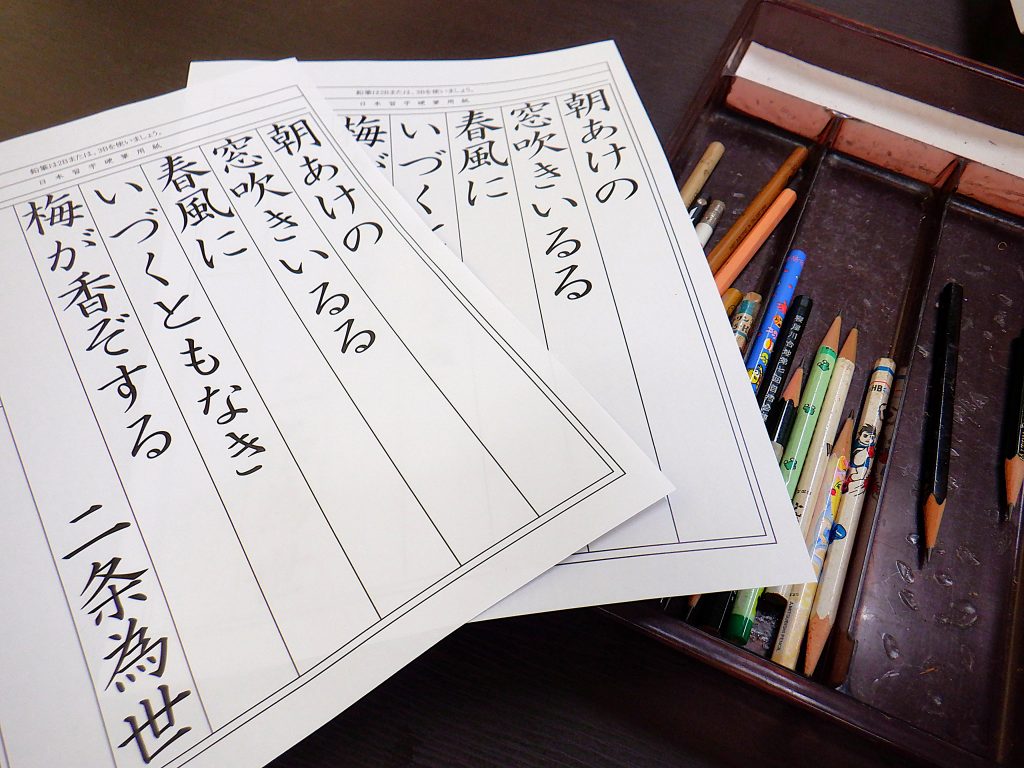 鉛筆は2Bまたは、3Bを使いましょう。
日本習字硬筆用紙
朝あけの
窓吹きいるる
春風に
いづくともなき
梅が香ぞする 二条為世
鉛筆は2Bまたは、3Bを使いましょう。
日本習字硬筆用紙
朝あけの
窓吹きいるる
春風に
いづく
梅が
HB